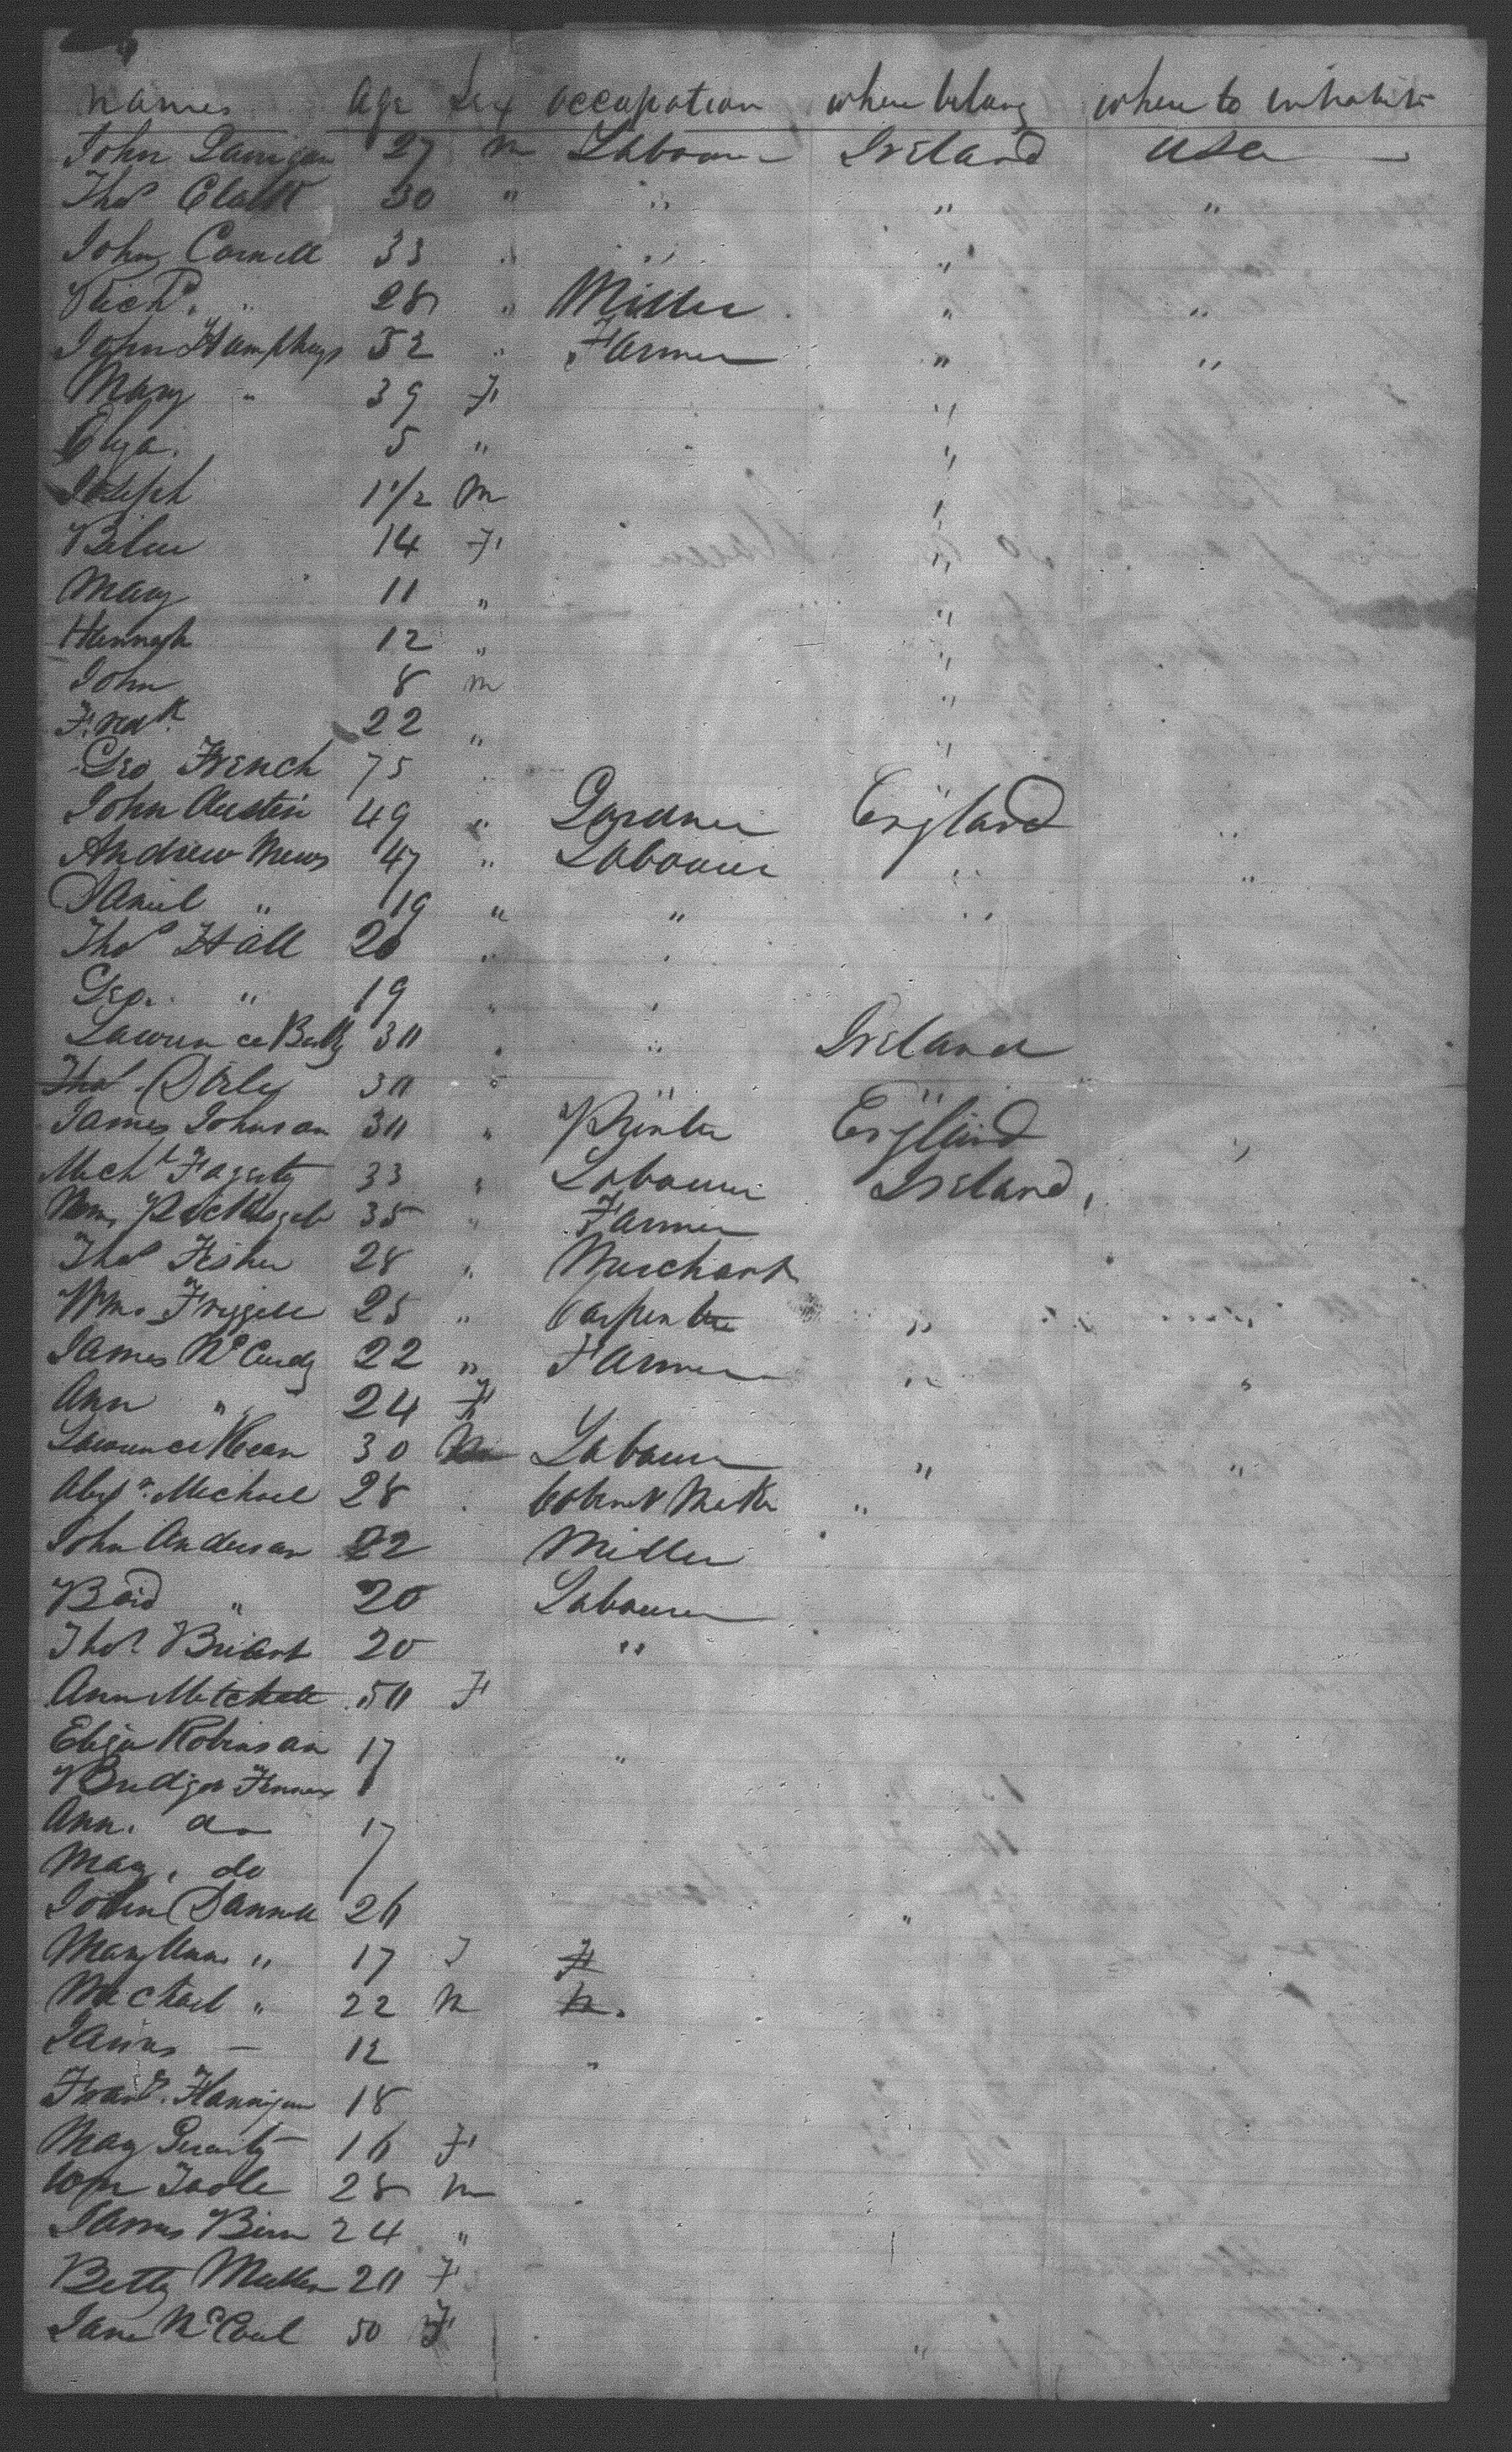 Names Age Sex Occupation where belong where to inhabit
John 27 m Labourer Ireland USA
Thos Clark 30 " " " "
John Cornell 33 " " "
Richd. " 28 " Miller " "
John Humphrys 52 " Farmer " "
Mary " 39 F "
Eliza. 5 " "
Joseph 1 1/2 m "
14 F "
Mary 11 " "
Hannah 12 " "
John 8 m "
Fredk. 22 " "
Geo French 75 "
John Austin 49 " Gardner England "
Andrew Mews 47 " Labourer " "
Daniel " 19 " " "
Thos Hall 20 " "
Geo. " 19 " "
Lawrence 30 " " Ireland
Thos 30 " " "
James Johnson 30 " Printer England "
Michl Fagerty 33 " Labourer Ireland,
Wm. 35 " Farmer
Thos Fisher 28 " Merchant
Wm. Frizzell 25 " Carpenter "
James McCurdy 22 " Farmer " "
Ann " 24 F
Lawrence Kean 30 M Labourer " "
Alexr. Michael 28 Cabinet Maker "
John Anderson 22 Miller
Boid " 20 Labourer
Thos Briant 20 "
Ann Mitchell 50 F
Eliza Robinson 17 "
Bridget
Ann. do 17
Mary. do 7
John Dannell 26 "
Mary Ann " 17 F F
Michael " 22 M M.
James — 12 "
Frans. Flannigan 18
May 16 F
Wm 28 m
James Birn 24 "
Betty Mullen 20 F
Jane McCoul 50 F "